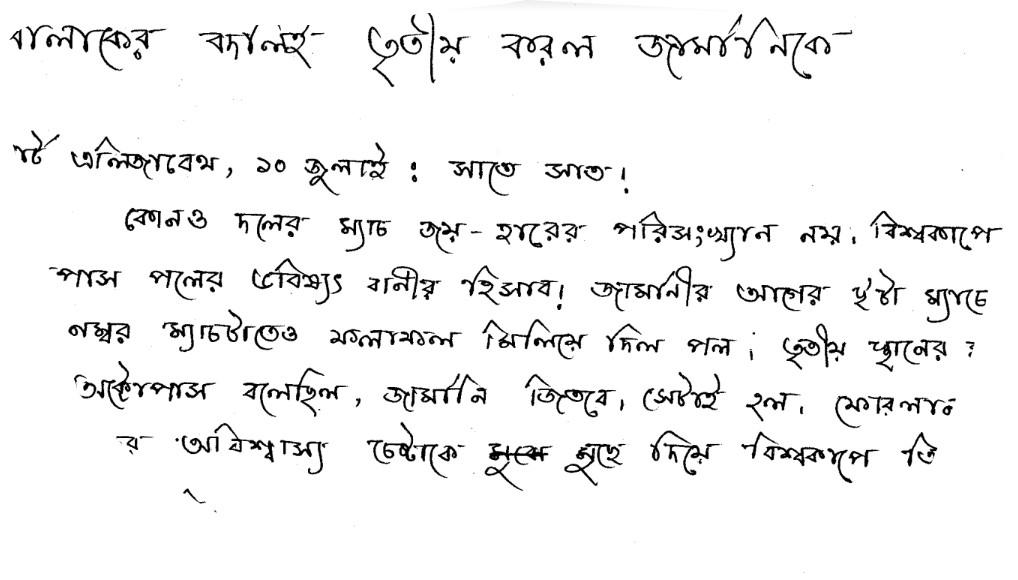 বালাকের বদলই তৃতীয় করল জার্মানিকে
র্ট এলিজাবেথ, ১০ জুলাই : সাতে সাত!
কোনও দলের ম্যাচ জয় - হারের পরিসংখ্যান নয়। বিশ্বকাপে
পাস পলের ভবিষ্যৎ বানীর হিসাব! জার্মানীর আগের ছ'টা ম্যাচে
নম্বর ম্যাচটাতেও ফলাফল মিলিয়ে দিল পল। তৃতীয় স্থানের
অক্টোপাস বলেছিল, জার্মানি জিতবে। সেটাই হল। ফোরলান
র অবিশ্বাস্য চেষ্টাকে মুছে দিয়ে বিশ্বকাপে তি